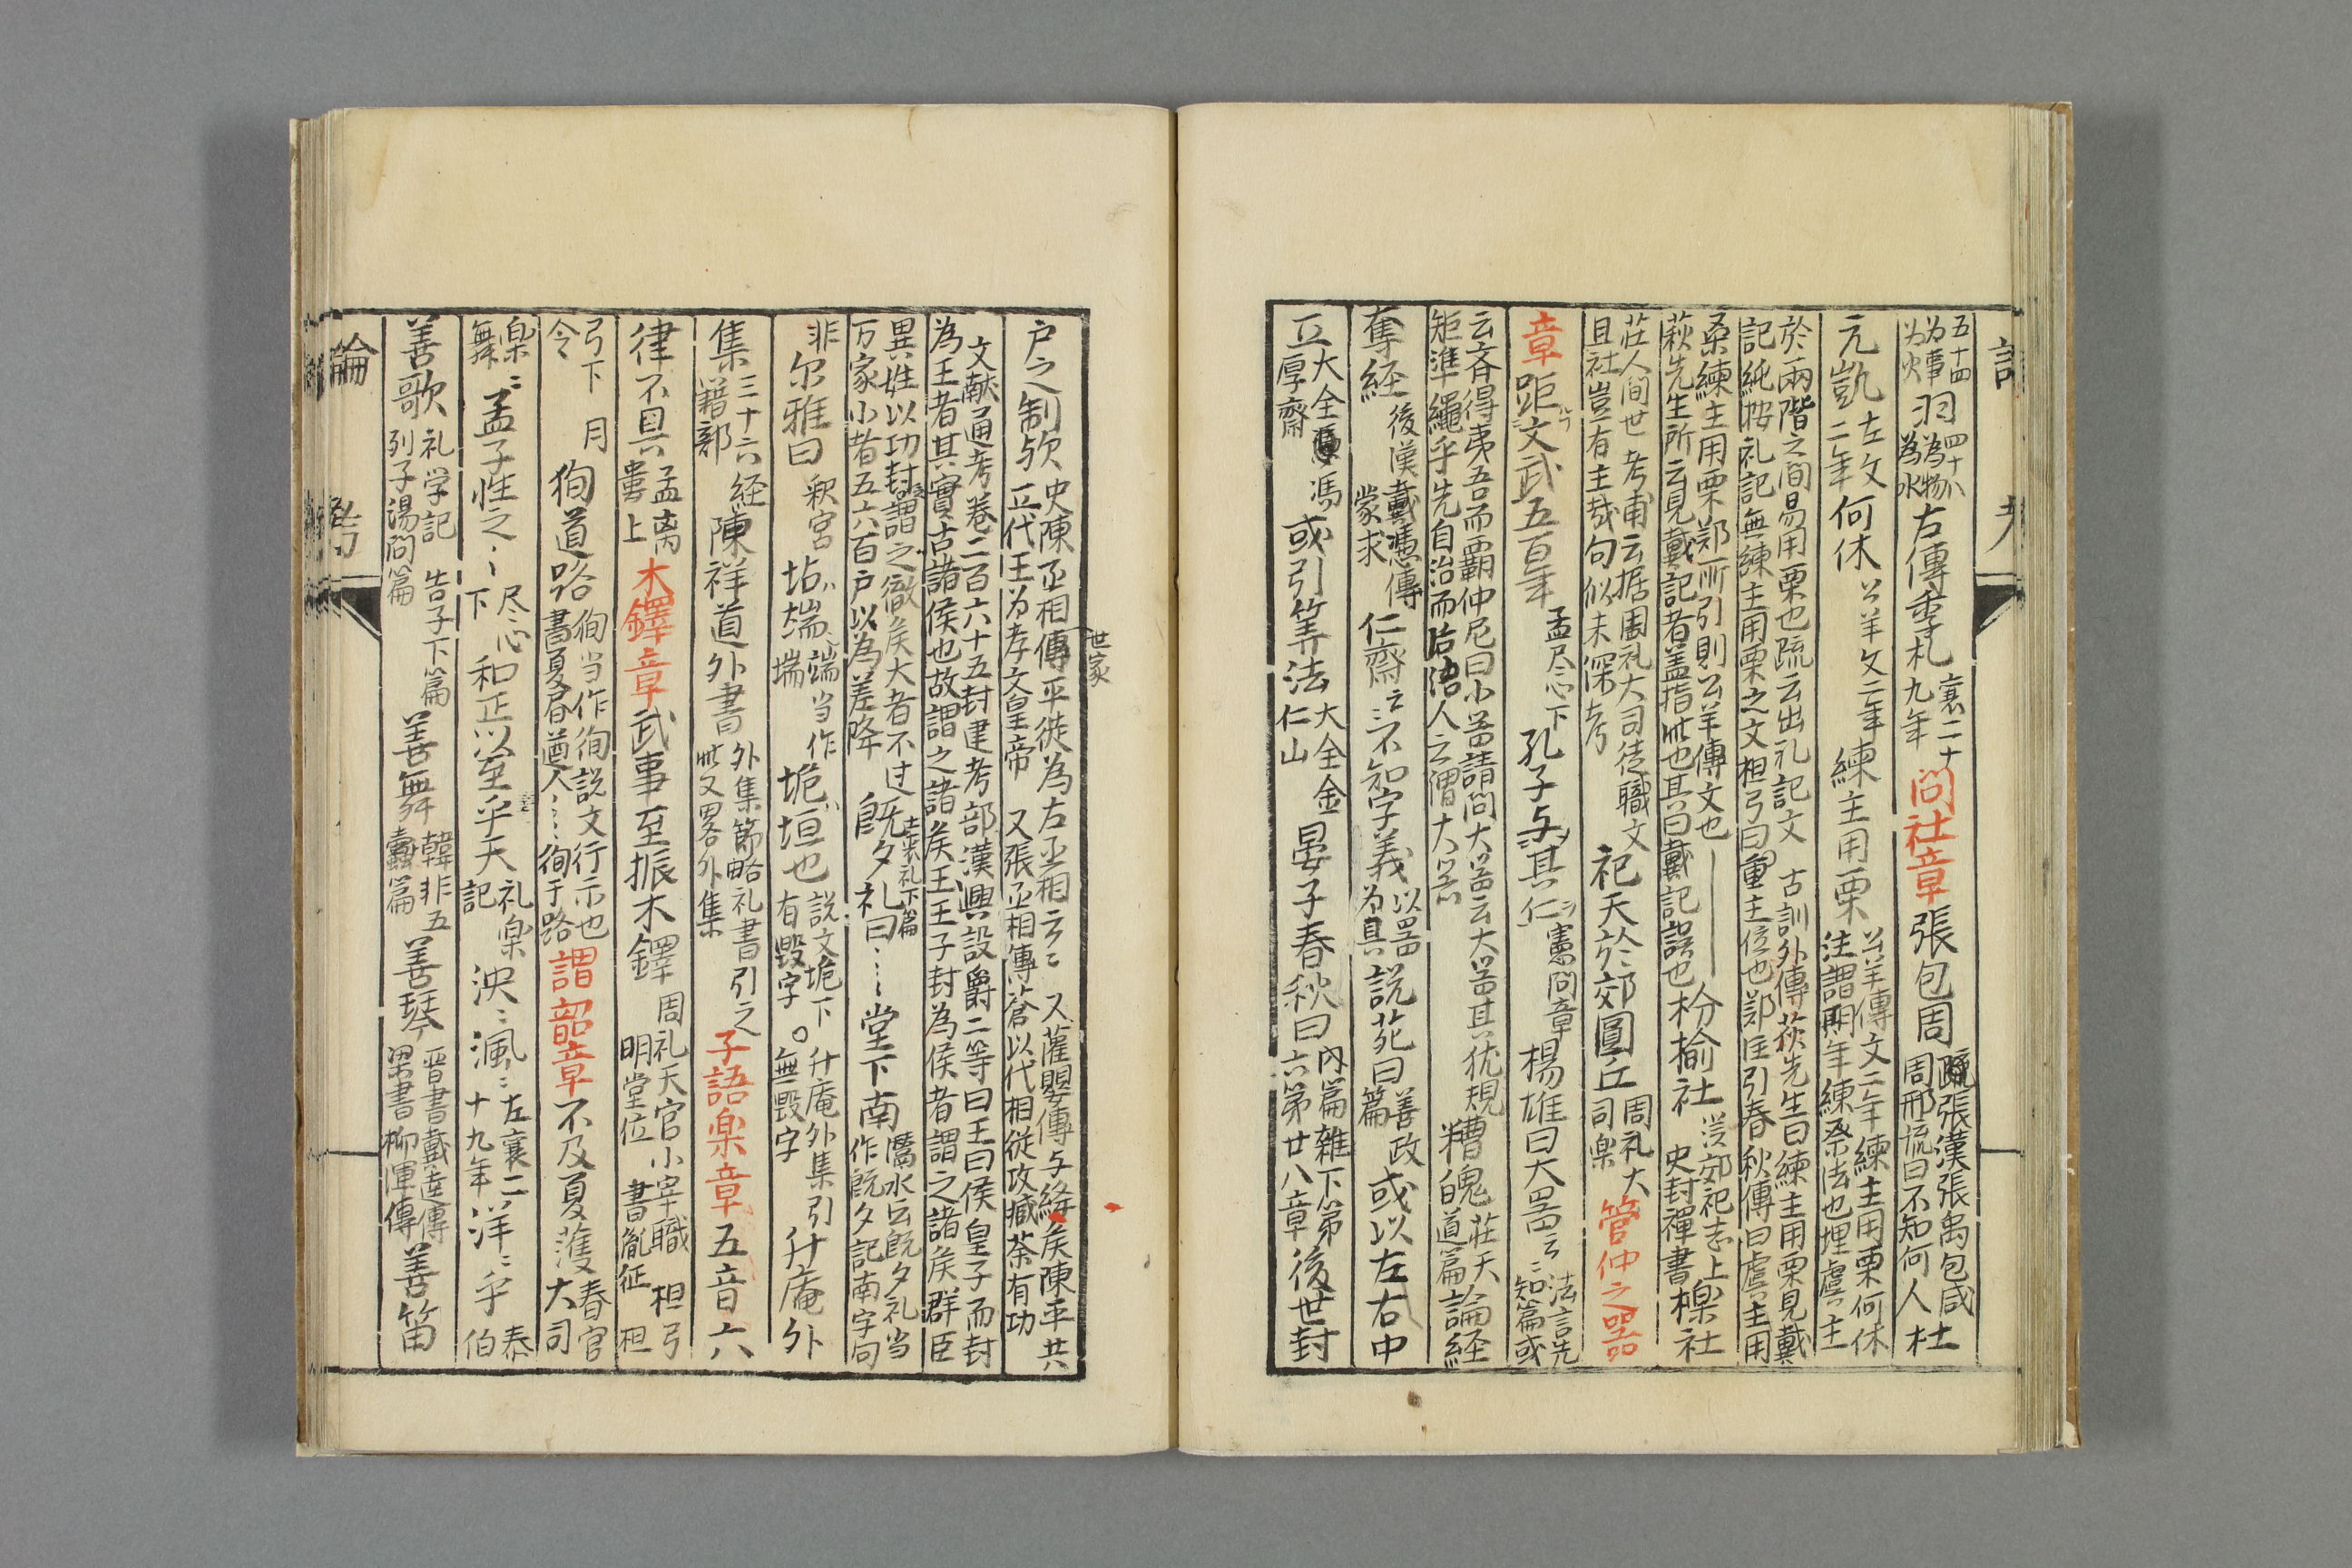 五十四
为事
为煇
羽
四十八
為物
為水
左傳季札
襄二十
九年
問社章
張包周
疏張漢張禹包咸
周邢疏曰不知何人
杜
元凱
左文
二年
何休
公羊文二年
練主用栗
公羊傳文二年練主用栗何休
注謂期年練祭法也埋虞主
於兩階之間易用栗也疏云出礼記文 古訓外傳荻先生曰練主用栗見戴
記純按礼記無練主用栗之文檀弓曰重主位也鄭注引春秋傳曰虞主用
桑練主用栗鄭所引則公羊傳文也
萩先生所云見戴記者盖指此也其曰戴記誤也
枌榆社
漢郊祀志上
史封禪書
櫟社
莊人间世 考甫云据周礼大司徒職文
且社豈有主哉句似未深考
祀天於郊圓丘
周礼大
司楽
管仲之器
章
距文武五百年
孟尽心下
孔子与其仁
憲问章
楊雄曰大器云〻
法言先
知篇或
云斉得夷吾而覇仲尼曰小器請问大器云大器其犹規
矩準繩乎先自治而后治人之謂大器
糟魄
莊天
道篇
論経
奪経
後漢戴憑傳
蒙求
仁齋云〻不知字義
以器
为具
説苑曰
善政
篇
或以左右中
立
大全馮
厚齋
或引筭法
大全金
仁山
晏子春秋曰
内篇雜下第
六第廿八章
後世封
戸之制欤
史陳丞相傳平徙为左丞相云〻 又灌嬰傳与絳矦陳平共
立代王为孝文皇帝 又張丞相傳蒼以代相従攻臧荼有功
世家
文献通考卷二百六十五封建考部漢興設爵二等曰王曰侯皇子而封
為王者其實古諸侯也故謂之諸矦王王子封為侯者謂之諸矦群臣
異姓以功封謂之徹矦大者不过
万家小者五六百戸以為差降
既夕礼曰
士喪礼下篇
堂下南
鷹水云既夕礼当
作既夕記南字同
非
尔雅曰
釈宮
坫端
端当作
㙐
垝垣也
説文垝下
有毀字
升庵外集引
無毀字
升庵外
集
三十六経
籍部
陳祥道外書
外集節略礼書引之
此又畧外集
子語楽章
五音六
律不具
孟离
婁上
木鐸章
武事至振木鐸
周礼天官小宰職 檀弓
明堂位 書胤征 檀
弓下 月
令
狥道路
徇当作徇説文行示也
書夏眉遒人〻〻徇于路
謂韶章
不及夏濩
春官
大司
楽〻
舞
孟子性之〻
尽心
下
和正以至乎天
礼楽
記
泱〻渢〻
左襄二
十九年
洋〻乎
泰
伯
善歌
礼学記 告子下篇
列子湯问篇
善舞
韓非五
蠹篇
善琴
晋書戴逵傳
梁書柳惲傳
善笛
論